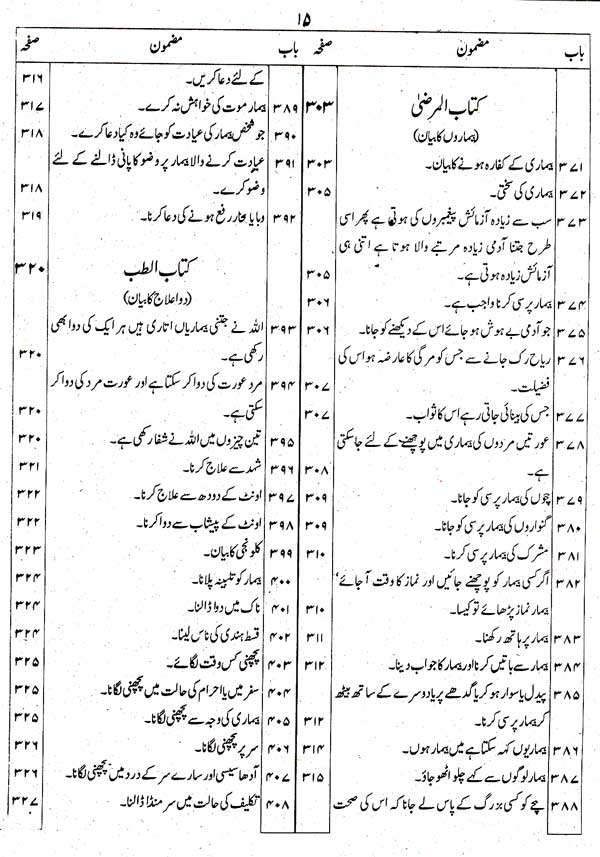 ۱۵
باب مضمون صفحہ
کتاب المرضیٰ ۳۰۳
(بیماروں کا بیان)
۳۷۱ بیماری کے کفارہ ہونے کا بیان۔ ۳۰۳
۳۷۲ بیماری کی سختی۔ ۳۰۵
۳۷۳ سب سے زیادہ آزمائش پیغمبروں کی ہوتی ہے پھر اسی
طرح جتنا آدمی زیادہ مرتبے والا ہوتا ہے اتنی ہی
آزمائش زیادہ ہوتی ہے۔ ۳۰۵
۳۷۴ بیمار پرسی کرنا واجب ہے۔ ۳۰۶
۳۷۵ جو آدمی بے ہوش ہو جائے اس کے دیکھنے کو جانا۔ ۳۰۶
۳۷۶ ریاح رک جانے سے جس کو مرگی کا عارضہ ہو اس کی
فضیلت۔ ۳۰۷
۳۷۷ جس کی بینائی جاتی رہے اس کا ثواب۔ ۳۰۷
۳۷۸ عورتیں مردوں کی بیماری میں پوچھنے کے لئے جا سکتی
ہے۔ ۳۰۸
۳۷۹ بچوں کی بیمار پرسی کو جانا۔ ۳۰۹
۳۸۰ گنواروں کی بیمار پرسی کو جانا۔ ۳۰۹
۳۸۱ مشرک کی بیمار پرسی کرنا۔ ۳۱۰
۳۸۲ اگر کسی بیمار کو پوچھنے جائیں اور نماز کا وقت آ جائے،
بیمار نماز پڑھائے تو کیسا۔ ۳۱۰
۳۸۳ بیمار پر ہاتھ رکھنا۔ ۳۱۱
۳۸۴ بیمار سے باتیں کرنا اور بیمار کا جواب دینا۔ ۳۱۲
۳۸۵ پیدل یا سوار ہو کر یا گدھے پر یا دوسرے کے ساتھ بیٹھ
کر بیمار پرسی کرنا۔ ۳۱۲
۳۸۶ بیمار یوں کہہ سکتا ہے میں بیمار ہوں۔ ۳۱۴
۳۸۷ بیمار لوگوں سے کہے چلو اٹھو جاؤ۔ ۳۱۵
۳۸۸ بچے کو کسی بزرگ کے پاس لے جانا کہ اس کی صحت
باب مضمون صفحہ
کے لئے دعا کریں۔ ۳۱۶
۳۸۹ بیمار موت کی خواہش نہ کرے۔ ۳۱۷
۳۹۰ جو شخص بیمار کی عیادت کو جائے وہ کیا دعا کرے۔ ۳۱۸
۳۹۱ عیادت کرنے والا بیمار پر وضو کا پانی ڈالنے کے لئے
وضو کرے۔ ۳۱۸
۳۹۲ وبا یا بخار رفع ہونے کی دعا کرنا۔ ۳۱۹
کتاب الطب ۳۲۰
(دوا علاج کا بیان)
۳۹۳ اللہ نے جتنی بیماریاں اتاری ہیں ہر ایک کی دوا بھی
رکھی ہے۔ ۳۲۰
۳۹۴ مرد عورت کی دوا کر سکتا ہے اور عورت مرد کی دوا کر
سکتی ہے۔ ۳۲۰
۳۹۵ تین چیزوں میں اللہ نے شفا رکھی ہے۔ ۳۲۰
۳۹۶ شہد سے علاج کرنا۔ ۳۲۱
۳۹۷ اونٹ کے دودھ سے علاج کرنا۔ ۳۲۲
۳۹۸ اونٹ کے پیشاب سے دوا کرنا۔ ۳۲۲
۳۹۹ کلونجی کا بیان۔ ۳۲۳
۴۰۰ بیمار کو تلبینہ پلانا۔ ۳۲۴
۴۰۱ ناک میں دوا ڈالنا۔ ۳۲۴
۴۰۲ قسط ہندی کی ناس لینا۔ ۳۲۴
۴۰۳ پچھنی کس وقت لگائے۔ ۳۲۵
۴۰۴ سفر میں یا احرام کی حالت میں پچھنی لگانا۔ ۳۲۵
۴۰۵ بیماری کی وجہ سے پچھنی لگانا۔ ۳۲۵
۴۰۶ سر پر پچھنی لگانا۔ ۳۲۶
۴۰۷ آدھا سیسی اور سارے سر کے درد میں پچھنی لگانا۔ ۳۲۶
۴۰۸ تکلیف کی حالت میں سر منڈا ڈالنا۔ ۳۲۷